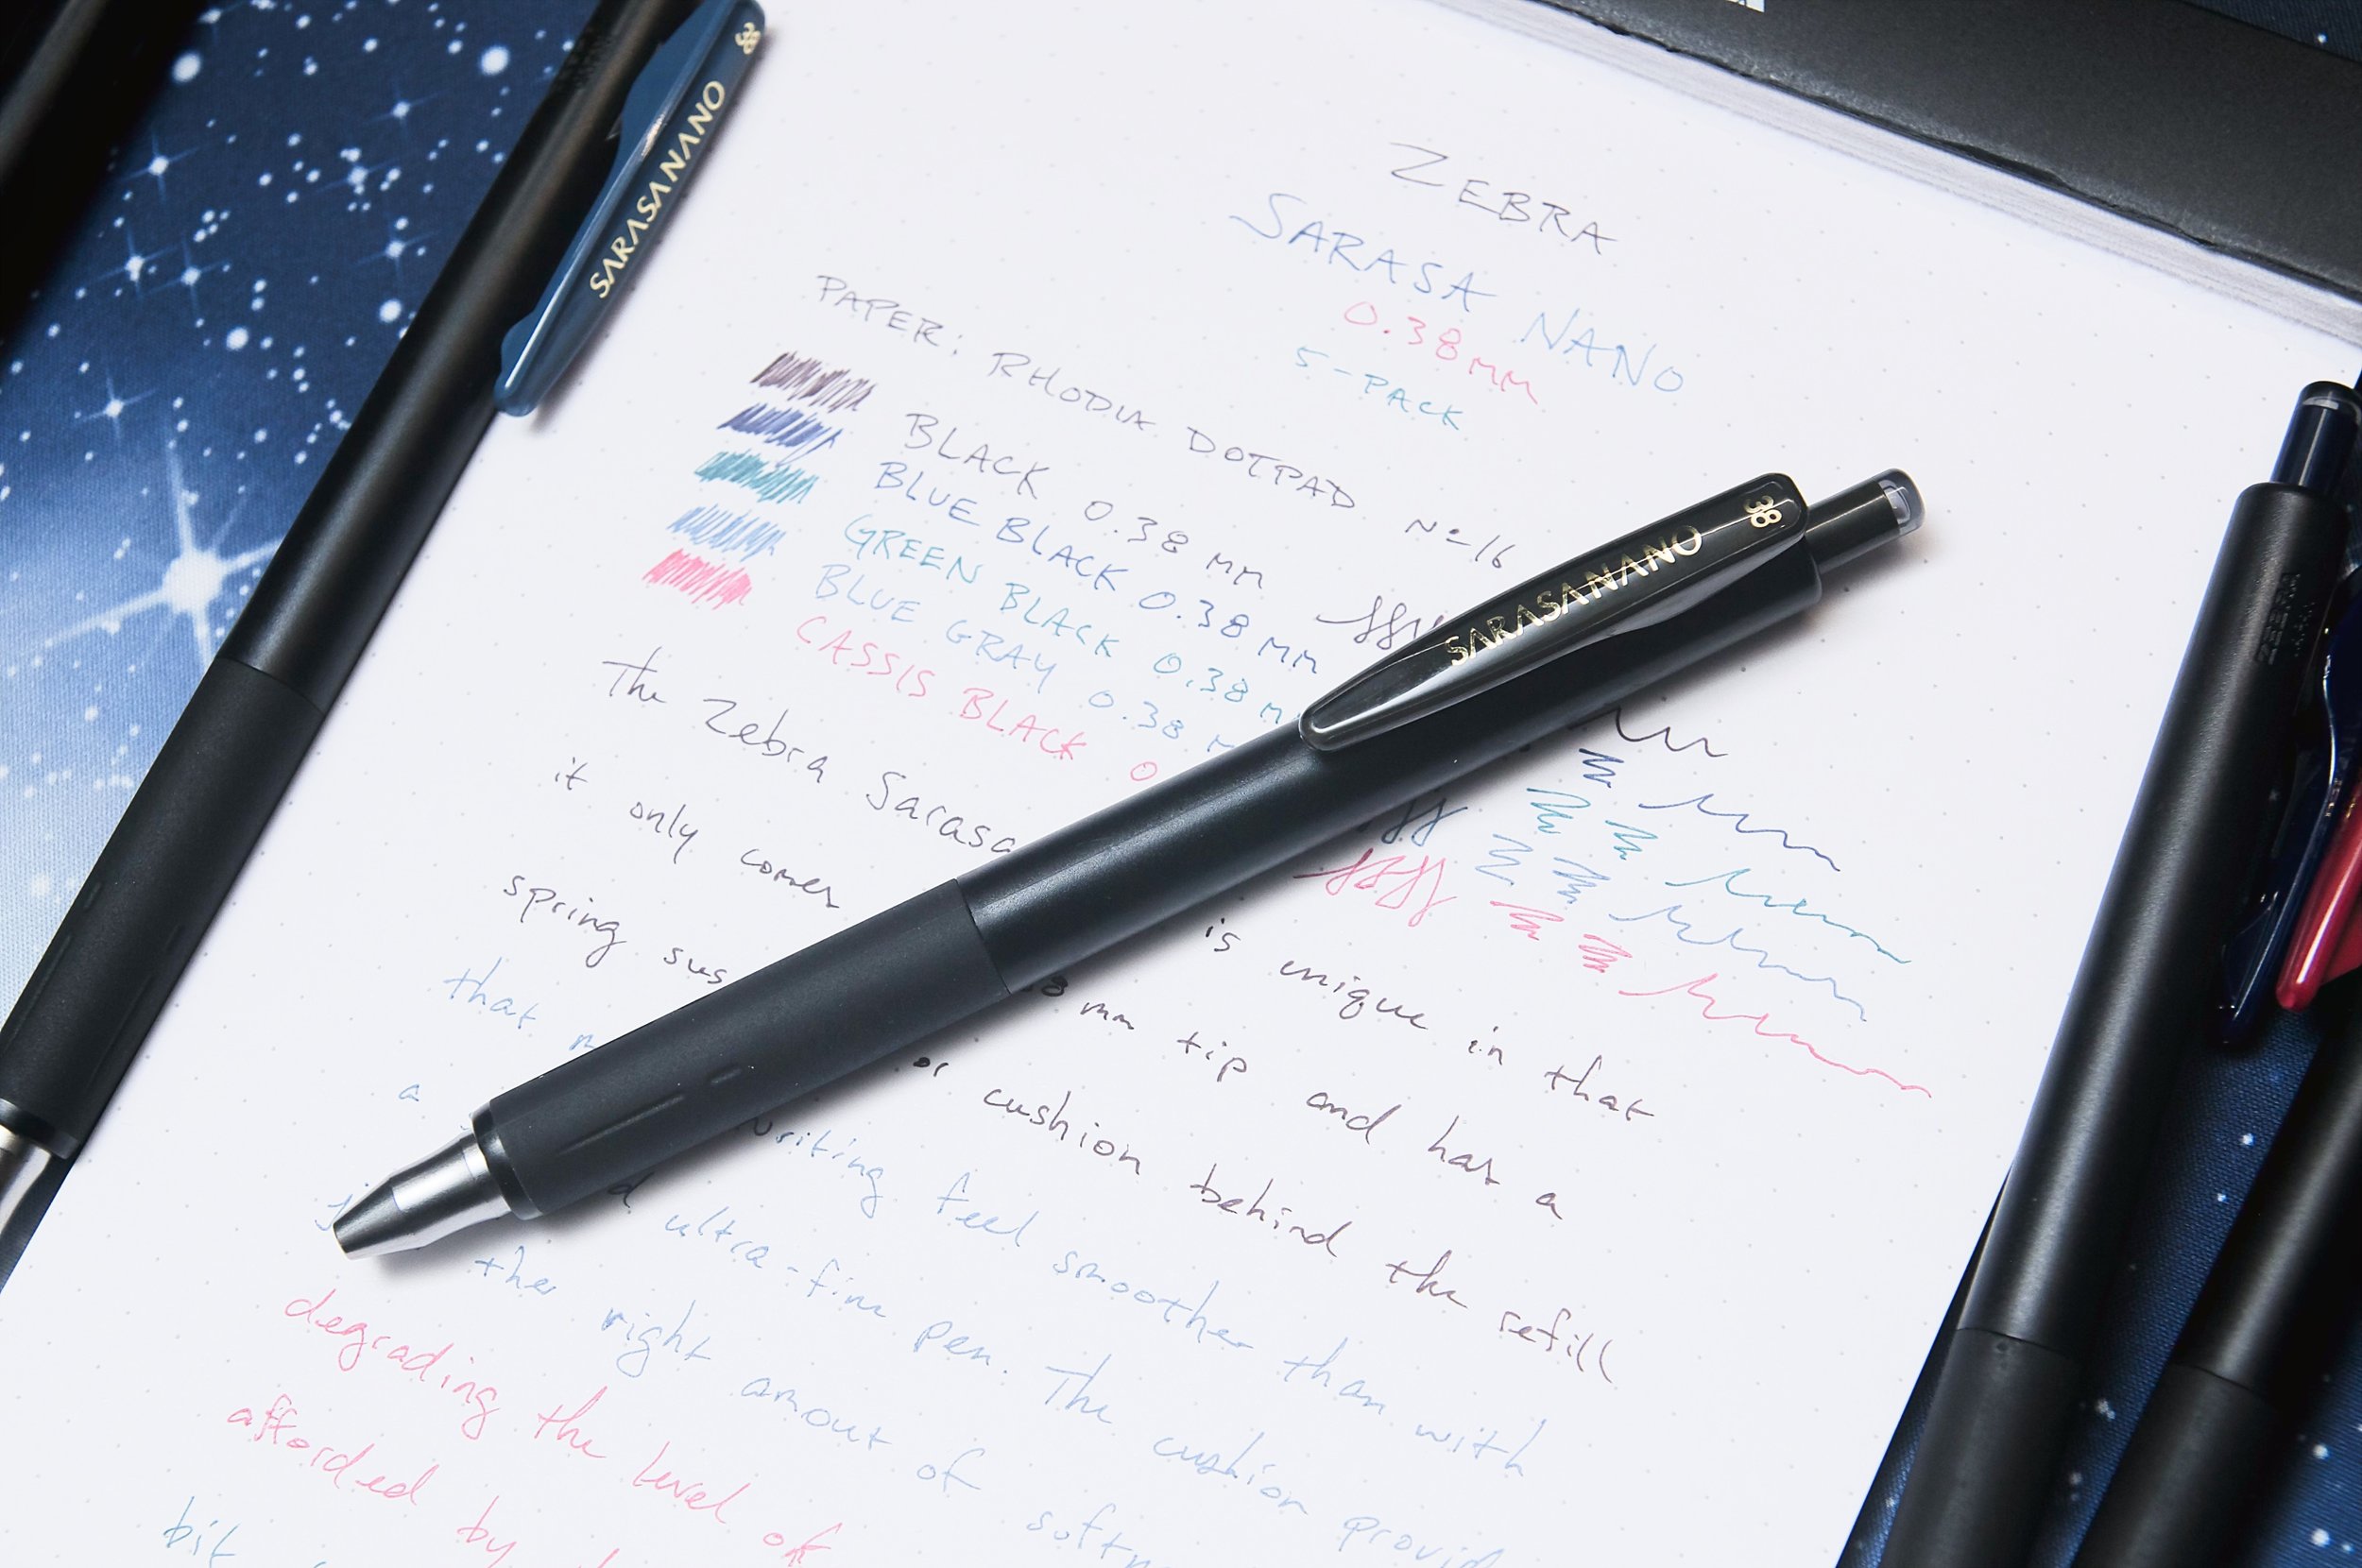 ZEBRA
SARASA NANO
0.38mm
5-PACK
PAPER: RHODIA DOTPAD No 16
BLACK 0.38 mm
BLUE BLACK 0.38 mm
GREEN BLACK 0.38 m
BLUE GRAY 0.38 m
CASSIS BLACK 0
The Zebra Sarasa is unique in that
it only comes 8 mm tip and has a
spring sus or cushion behind the refill
that m writing feel smoother than with
a d ultra-fine pen. The cushion provid
the right amout of softn
degrading the level of
afforded by
bit
SARASANANO 38
SARASANANO 38